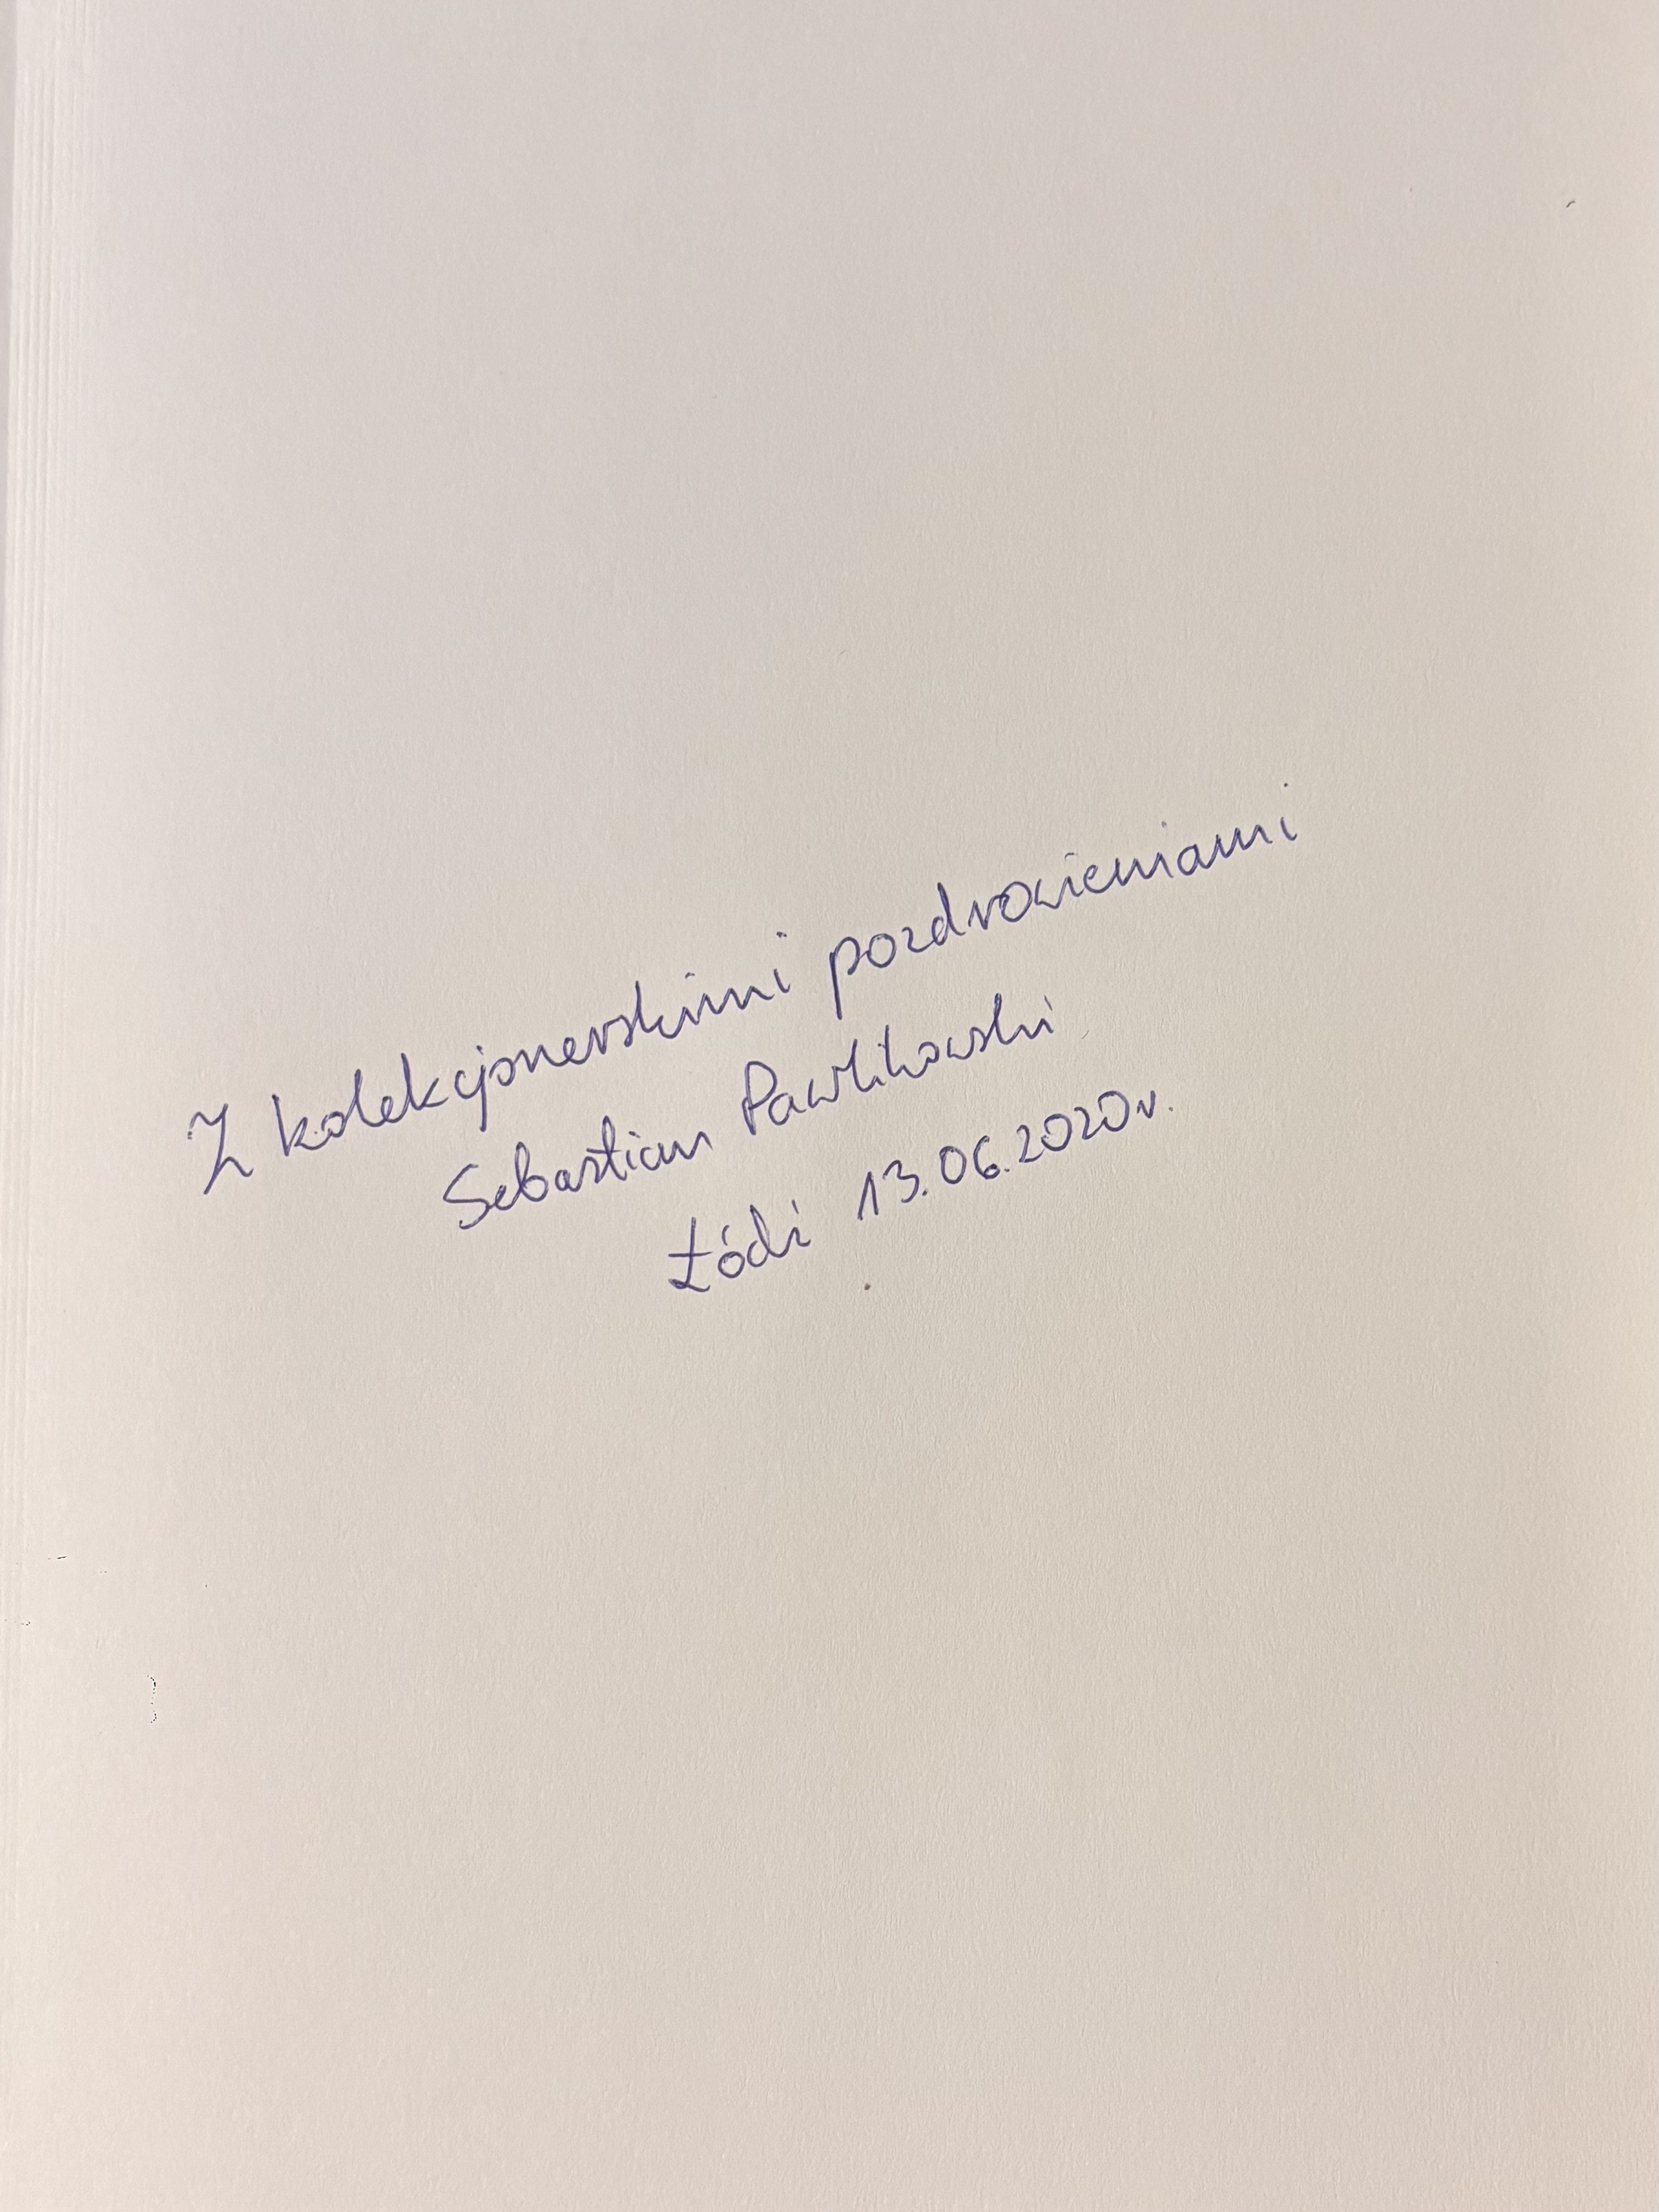 Z kolekcjonerskimi pozdrowieniami
Sebastian Pawlikowski
Łódź 13.06.2020r.